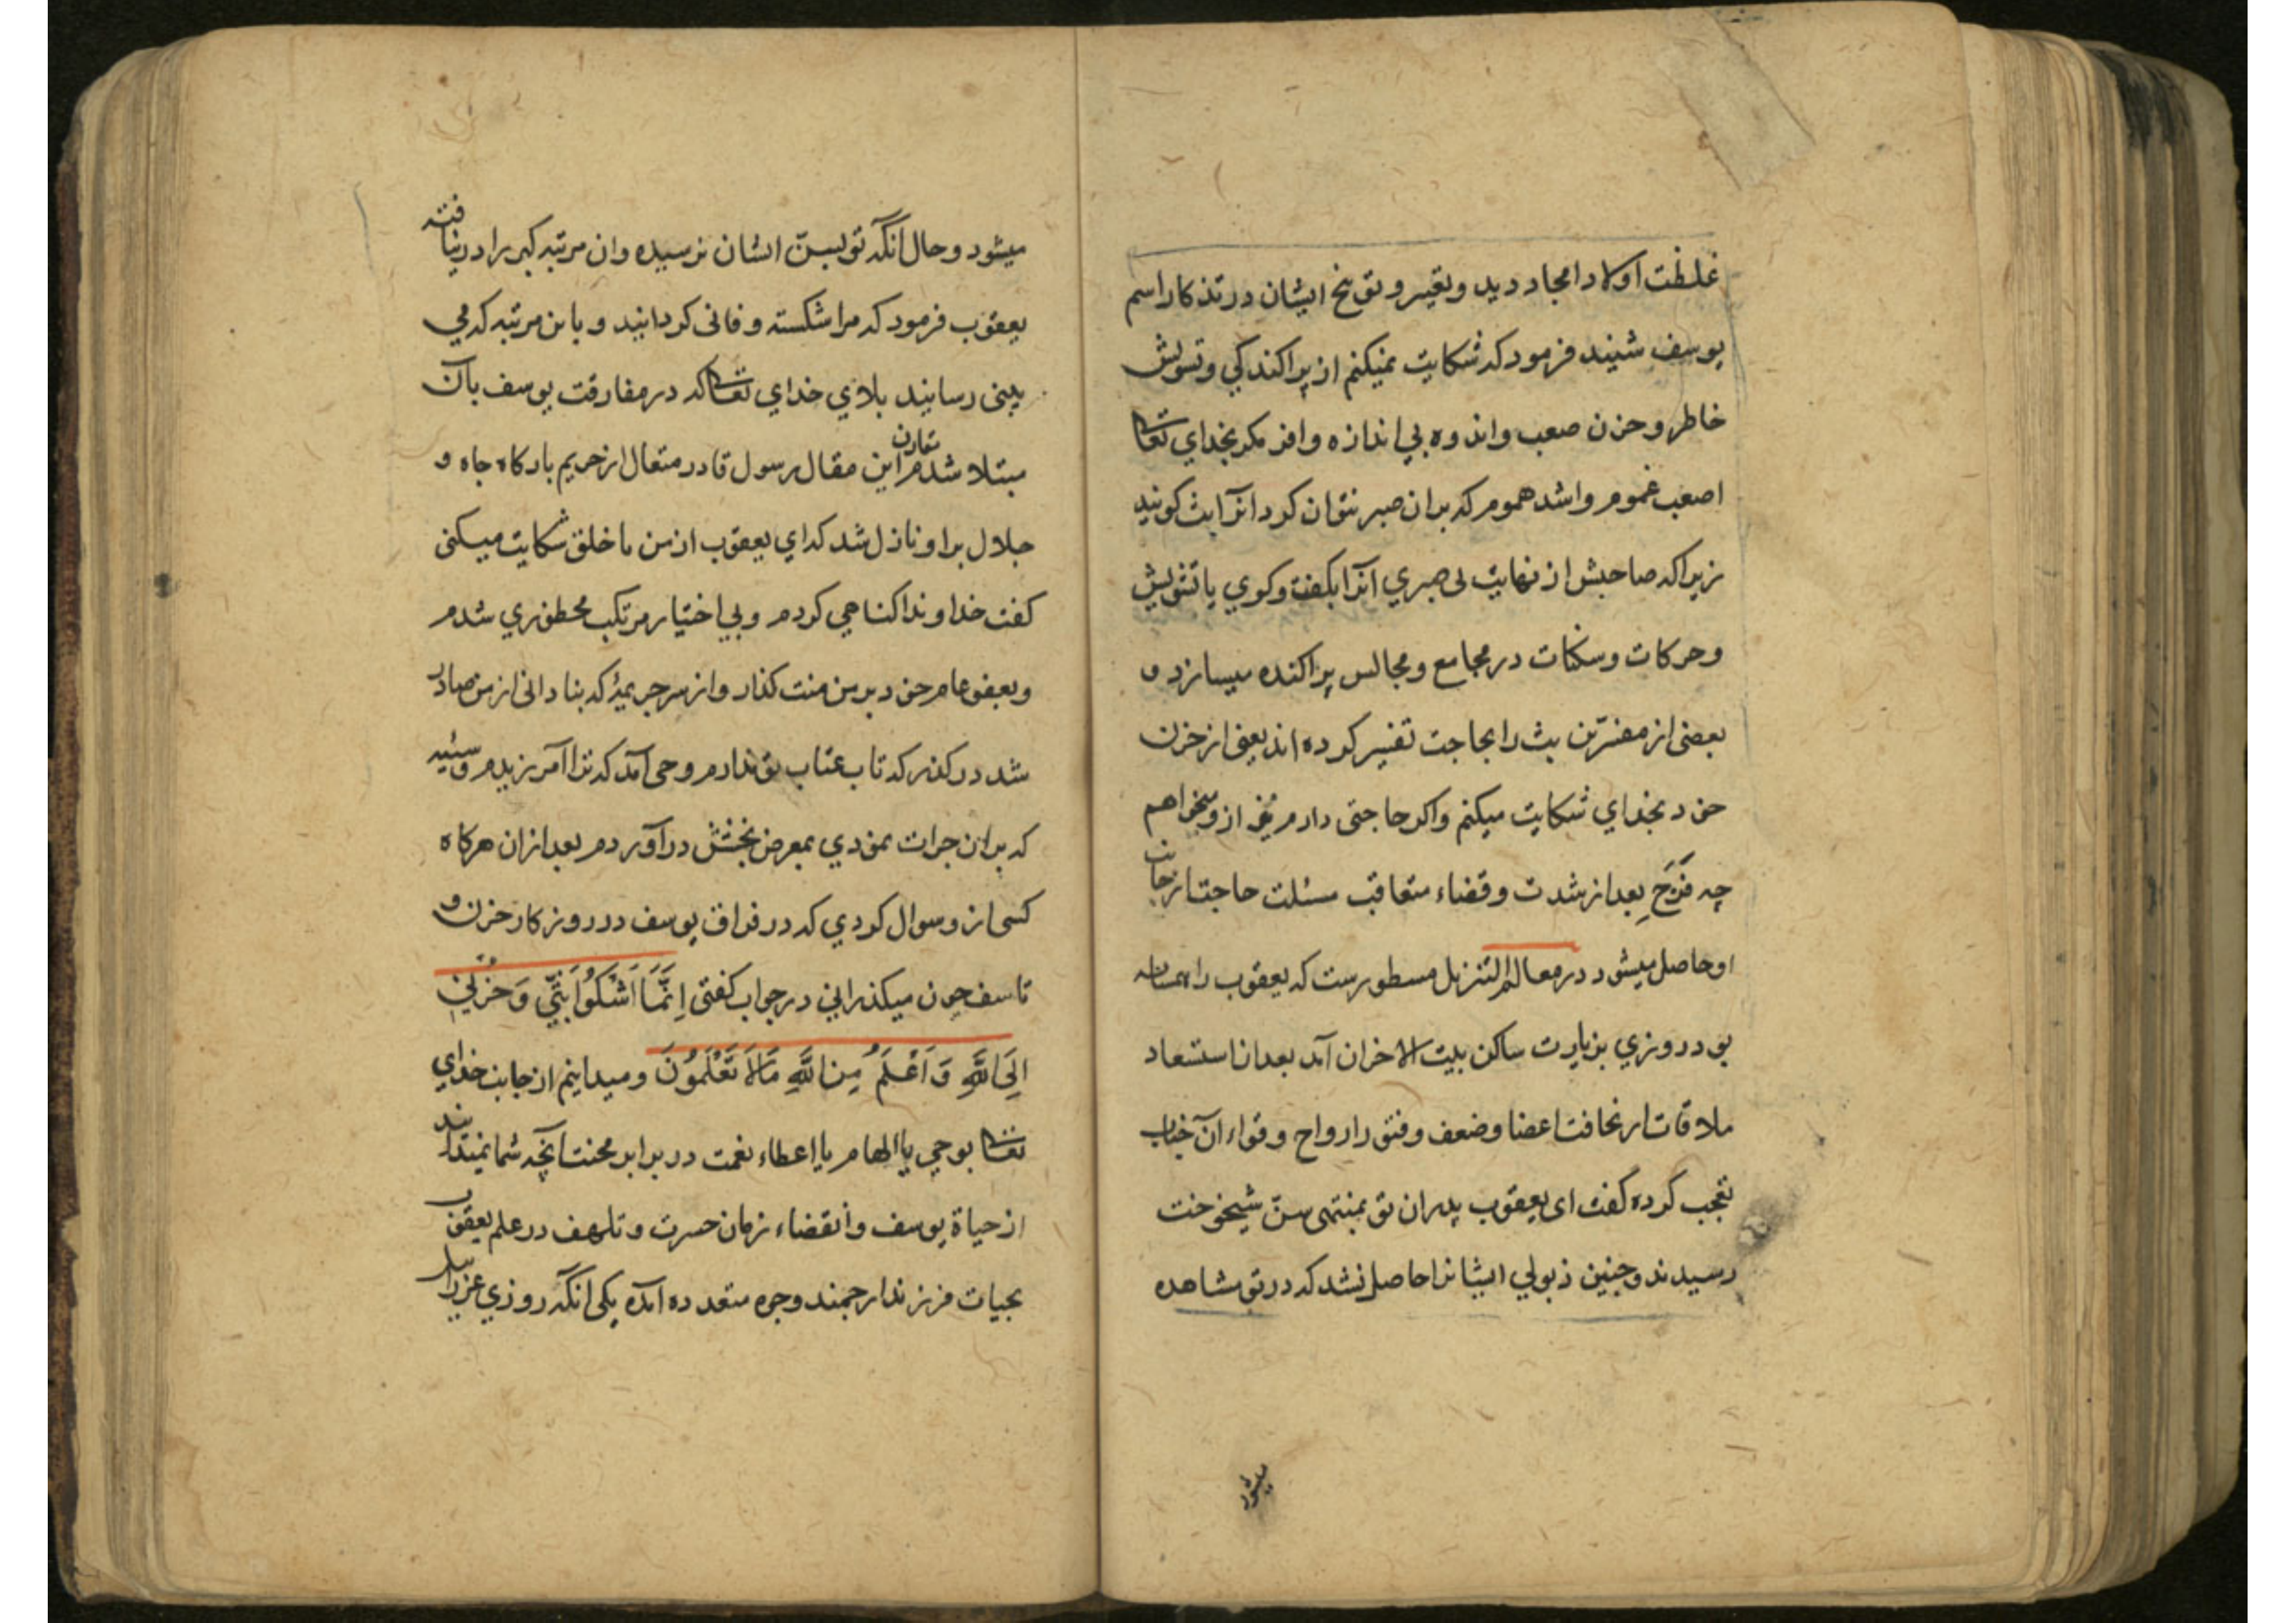 غلظت اولاد امجاد دید و تعییر و توبیخ ایشان در تذکار اسم
یوسف شنید فرمود که شکایت نمیکنم از پراکندکی و تشویش
خاطر و حزن صعب و اندوه بی اندازه وافر مکر بخدای تعالی
اصعب غموم و اشد هموم که بران صبر نتوان کرد انرا بث کویند
زیرا که صاحبش از نهایت بی صبری آنرا بکفت و کوی یا تشویش
و حرکات و سکنات در مجامع و مجالس پراکنده میسازد و
بعضی از مفسرین بث را بحاجت تفسیر کرده اند یعنی از حزن
خود بخدای شکایت میکنم و اکر حاجتی دارم نیز ازو میخواهم
چه فرح بعد از شدت و قضاء متعاقب مسئلت حاجت از جانب
او حاصل میشود در معالم التنزیل مسطورست که یعقوب را همسایه
بود روزی بزیارت ساکن بیت الاحزان آمد بعد از استسعاد
ملاقات از نحافت اعضا و ضعف و فتور ارواح و قواء آن جناب
تعجب کرده کفت ای یعقوب پدران تو بمنتهی سن شیخوخت
رسیدند و چنین ذبولی ایشانرا حاصل نشد که در تو مشاهده
میشود
میشود و حال آنکه تو بسن ایشان نرسیده و ان مرتبه کبر را در نیافته
یعقوب فرمود که مرا شکسته و فانی کردانید و باین مرتبه که می
بینی رسانید بلای خدای تعالی که در مفارقت یوسف بآن
مبتلا شدم مقارن این مقال رسول قادر متعال از حریم بارکاه جاه و
جلال براو نازل شد که ای یعقوب از من با خلق شکایت میکنی
کفت خداوندا کناهی کردم و بی اختیار مرتکب محظوری شدم
و بعفو عام خود بر من منت کذار و از سر جریمهٔ که بنادانی از من صادر
شد درکذر که تاب عتاب تو ندارم وحی آمد که ترا آمرزیدم و سیئه
که بران جرات نمودی بمعرض بخشش درآوردم بعد ازان هرکاه
کسی ازو سوال کردی که در فراق یوسف در روزکار حزن و
تاسف چون میکذرانی در جواب کفتی اِنَّمَا اَشْكُوا بَثّي وَ حُزْني
اِلَى اللَّهِ وَ اَعْلَمُ مِنَ اللَّهِ مَا لَا تَعْلَمُونَ و میدانیم از جانب خدای
تعالی بوحی یا الهام یا اعطاء نعمت در برابر محنت آنچه شما نمیدانید
از حیاة یوسف و انقضاء زمان حسرت و تلهف در علم یعقوب
بحیات فرزند ارجمند وجوه متعدده آمده یکی انکه روزی عزرائیل